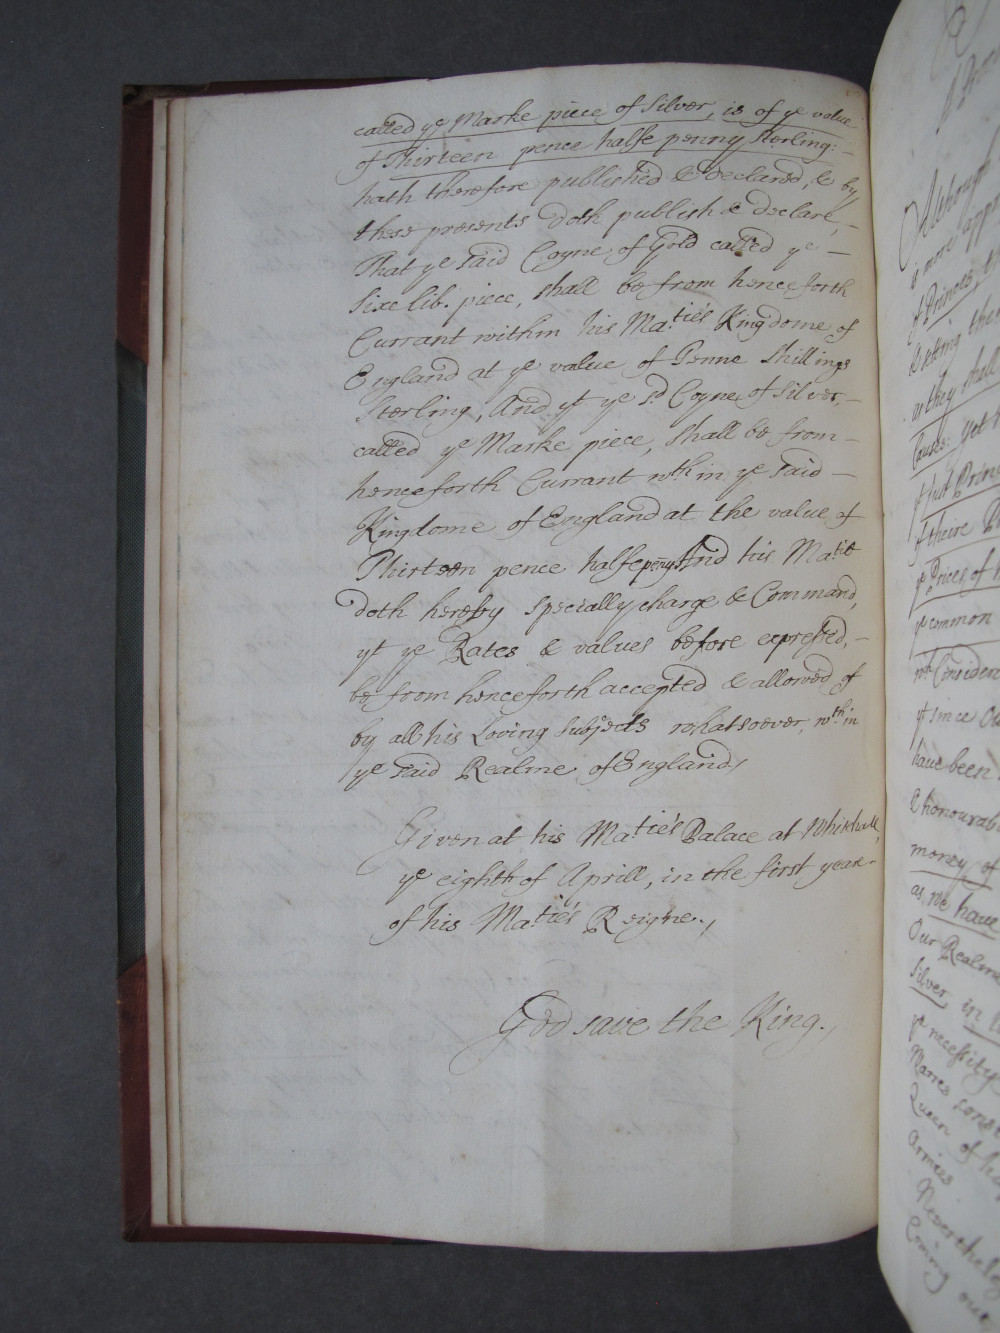 called ye Marke piece of Silver, is of ye value
of Thirteen pence halfe penny sterling: -
hath therefore published & declared, & by
these presents doth publish & declare, -
That ye said Coyne of Gold called ye -
Sixe lib. piece, shall be from henceforth
Currant within his Maties Kingdome of
England at ye value of Tenne Shillings
Sterling, And yt ye sd Coyne of Silver, -
called ye Marke piece, shall be from -
henceforth Currant wth in ye said -
Kingdome of England at the value of
Thirteen pence halfepenny And his Matie
doth hereby specially charge & Command,
yt ye Rates & values before expressed, -
be from henceforth accepted & allowed of
by all his Loving Subjects whatsoever, wth in
ye said Realme of England,
Given at his Matie's Palace at Whitehall,
ye eighth of Aprill, in the first year -
of his Matie's Reigne.,
God save the King.,
Although
is more appa
of Princes, t
letting the
as they shall
Causes: yet
yt just Prin
of theire
ye Prices of
ye common
wth Consider
yt since O
have been
& honourab
money of
as we have
Our Realme
Silver, in
ye necessity
Warres
Queen of
Armies
Neverthele
Coming out